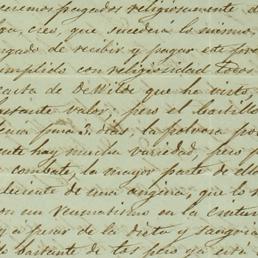 seremos pagados religiosamente d
ga, creo, que sucedera lo mismo,
rgado de recibir y pagar este pro
umplido con religiosidad todos
carta de De Wilde que ha visto
bastante valor; pero el bastillo
para 3 dias, la polvora po
ente hay mucha variedad, pero
combate, la mayor parte de ello
deciente de una angina, que lo
con un reumatismo en la cintur
y a pesar de la dieta y sangria
do bastante de tos pero ya está